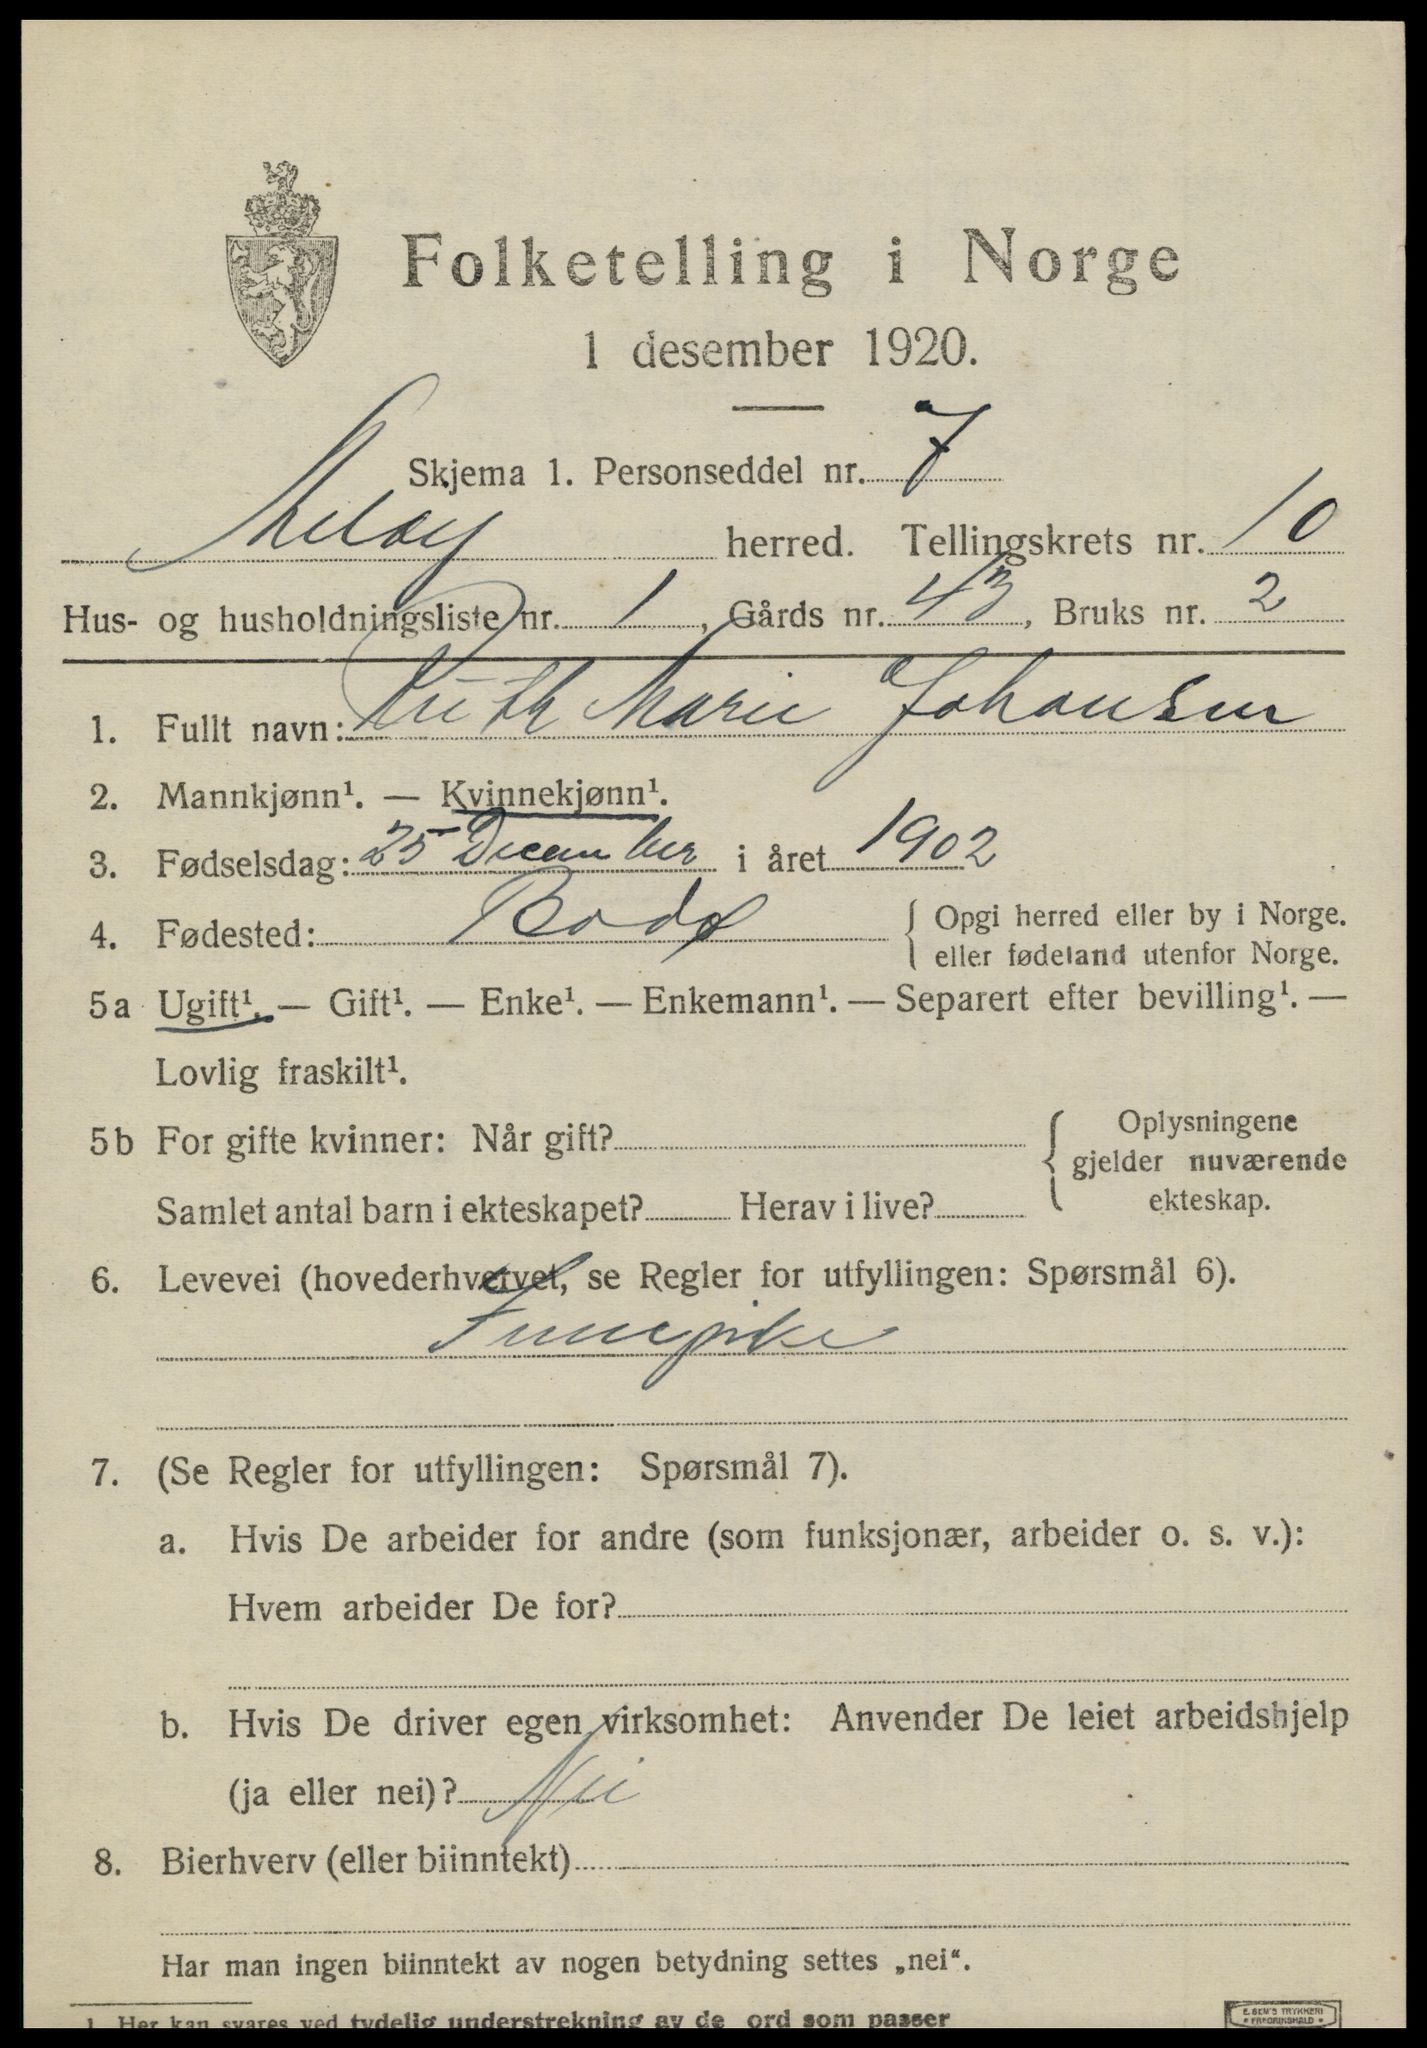 Folketelling i Norge
1 desember 1920.
Skjema 1. Personseddel nr. 7
Meløy herred. Tellingskrets nr. 10
Hus- og husholdningsliste nr. 1, Gårds nr. 43, Bruks nr. 2
1. Fullt navn: Ruth Marie Johansen
2. Mannkjønn¹. — Kvinnekjønn¹.
3. Fødselsdag: 25 December i året 1902
4. Fødested: Bodø { Opgi herred eller by i Norge.
eller fødeland utenfor Norge.
5a Ugift¹. — Gift¹. — Enke¹. — Enkemann¹. — Separert efter bevilling¹. —
Lovlig fraskilt¹.
5b For gifte kvinner: Når gift? { Oplysningene
gjelder nuværende
ekteskap.
Samlet antal barn i ekteskapet? Herav i live?
6. Levevei (hovederhvervet, se Regler for utfyllingen: Spørsmål 6).
7. (Se Regler for utfyllingen: Spørsmål 7).
a. Hvis De arbeider for andre (som funksjonær, arbeider o. s. v.):
Hvem arbeider De for?
b. Hvis De driver egen virksomhet: Anvender De leiet arbeidshjelp
(ja eller nei)? Nei
8. Bierhverv (eller biinntekt)
Har man ingen biinntekt av nogen betydning settes „nei“.
1. Her kan svares ved tydelig understrekning av de ord som passer
E. SEM'S TRYKKERI
* FREDRIKSHALD *